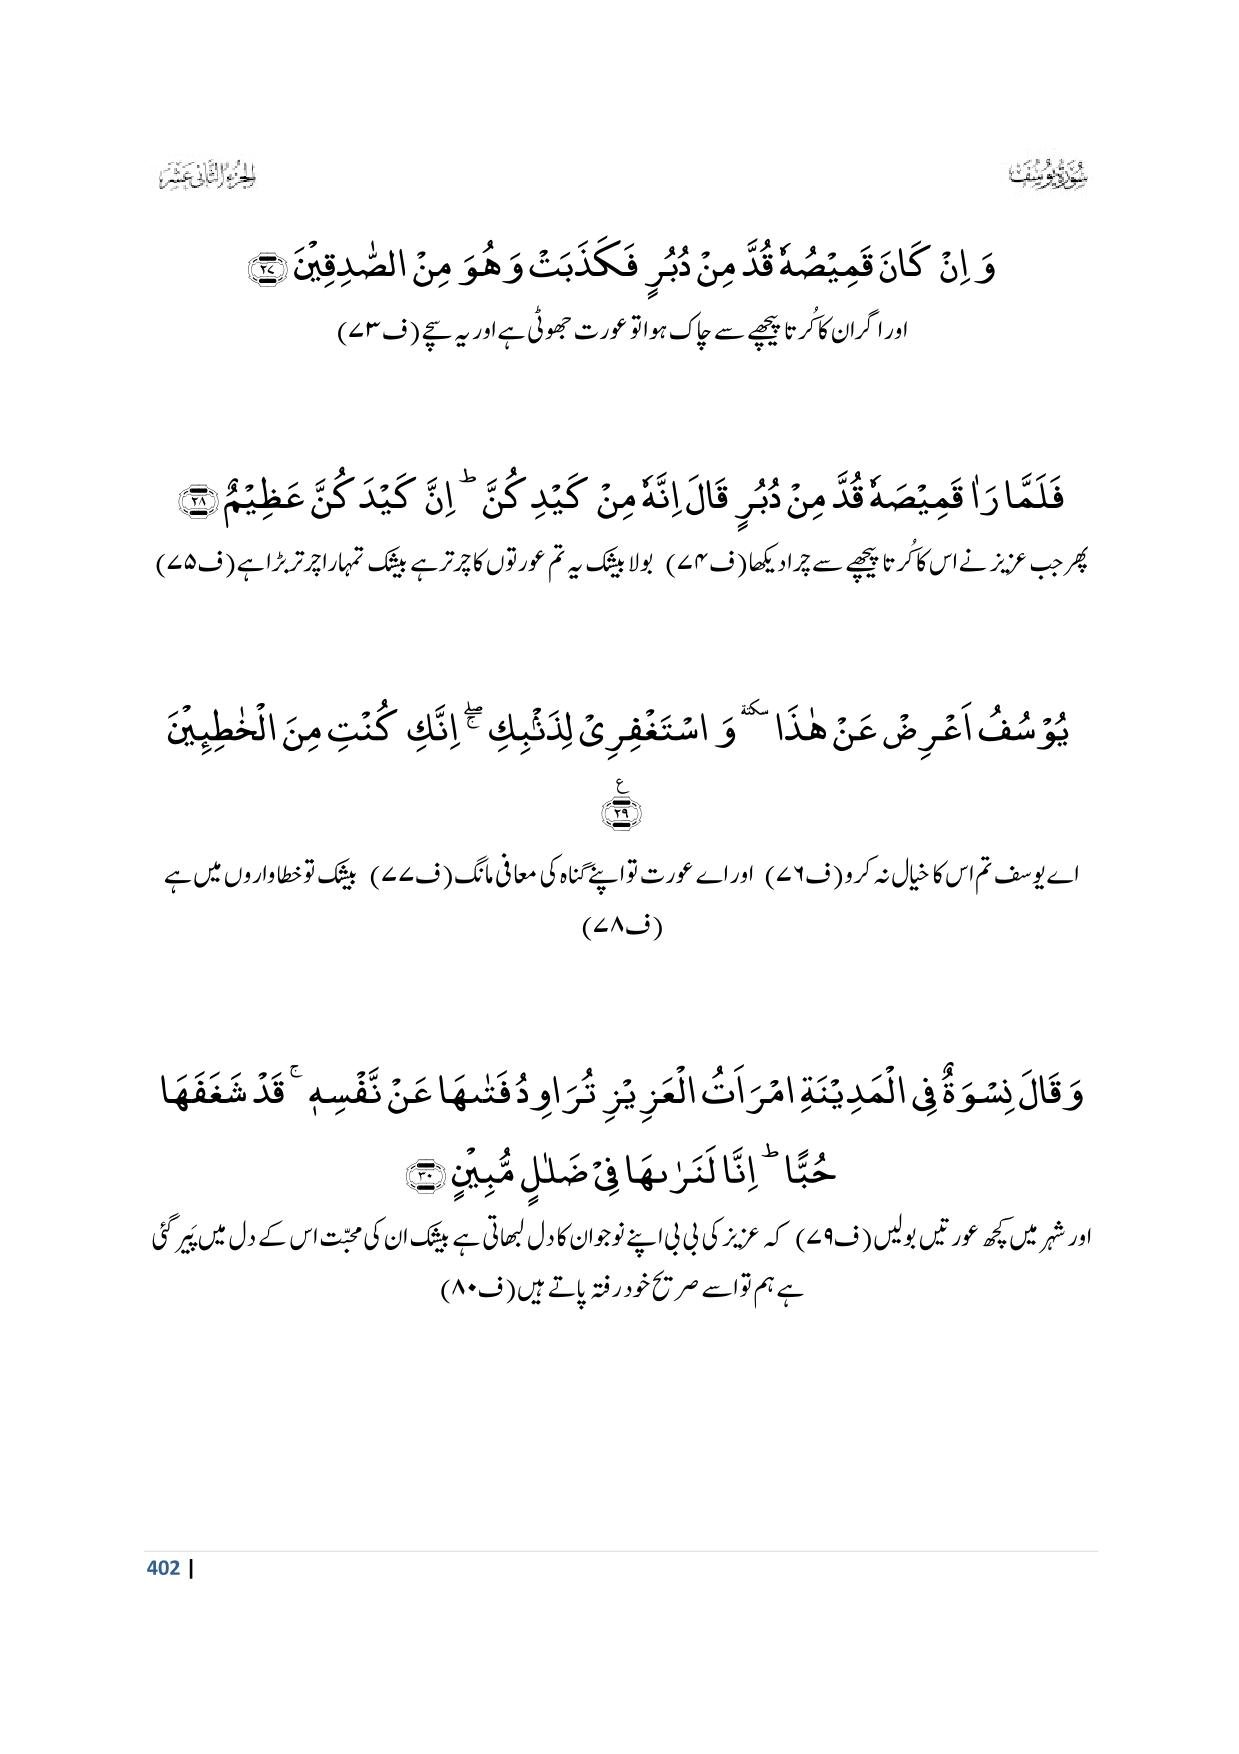 سُوْرَةُ يُوْسُفَ
الجزء الثانی عشر
وَ اِنْ كَانَ قَمِیْصُهٗ قُدَّ مِنْ دُبُرٍ فَكَذَبَتْ وَ هُوَ مِنَ الصّٰدِقِیْنَ ﴿۲۷﴾
اور اگر ان کا کُرتا پیچھے سے چاک ہوا تو عورت جھوٹی ہے اور یہ سچے (ف۷۳)
فَلَمَّا رَاٰ قَمِیْصَهٗ قُدَّ مِنْ دُبُرٍ قَالَ اِنَّهٗ مِنْ كَیْدِ كُنَّ ؕ اِنَّ كَیْدَ كُنَّ عَظِیْمٌ ﴿۲۸﴾
پھر جب عزیز نے اس کا کُرتا پیچھے سے چرا دیکھا (ف۷۴) بولا بیشک یہ تم عورتوں کا چرتر ہے بیشک تمہارا چرتر بڑا ہے (ف۷۵)
یُوْسُفُ اَعْرِضْ عَنْ هٰذَا ٚ وَ اسْتَغْفِرِیْ لِذَنْۢبِكِ ۚۖ اِنَّكِ كُنْتِ مِنَ الْخٰطِـِٕیْنَ
﴿۲۹﴾ ع
اے یوسف تم اس کا خیال نہ کرو (ف۷۶) اور اے عورت تو اپنے گناہ کی معافی مانگ (ف۷۷) بیشک تو خطاواروں میں ہے
(ف۷۸)
وَ قَالَ نِسْوَةٌ فِی الْمَدِیْنَةِ امْرَاَتُ الْعَزِیْزِ تُرَاوِدُ فَتٰىهَا عَنْ نَّفْسِهٖ ۚ قَدْ شَغَفَهَا
حُبًّا ؕ اِنَّا لَنَرٰىهَا فِیْ ضَلٰلٍ مُّبِیْنٍ ﴿۳۰﴾
اور شہر میں کچھ عورتیں بولیں (ف۷۹) کہ عزیز کی بی بی اپنے نوجوان کا دل لبھاتی ہے بیشک ان کی محبّت اس کے دل میں پَیر گئی
ہے ہم تو اسے صریح خود رفتہ پاتے ہیں (ف۸۰)
402 |